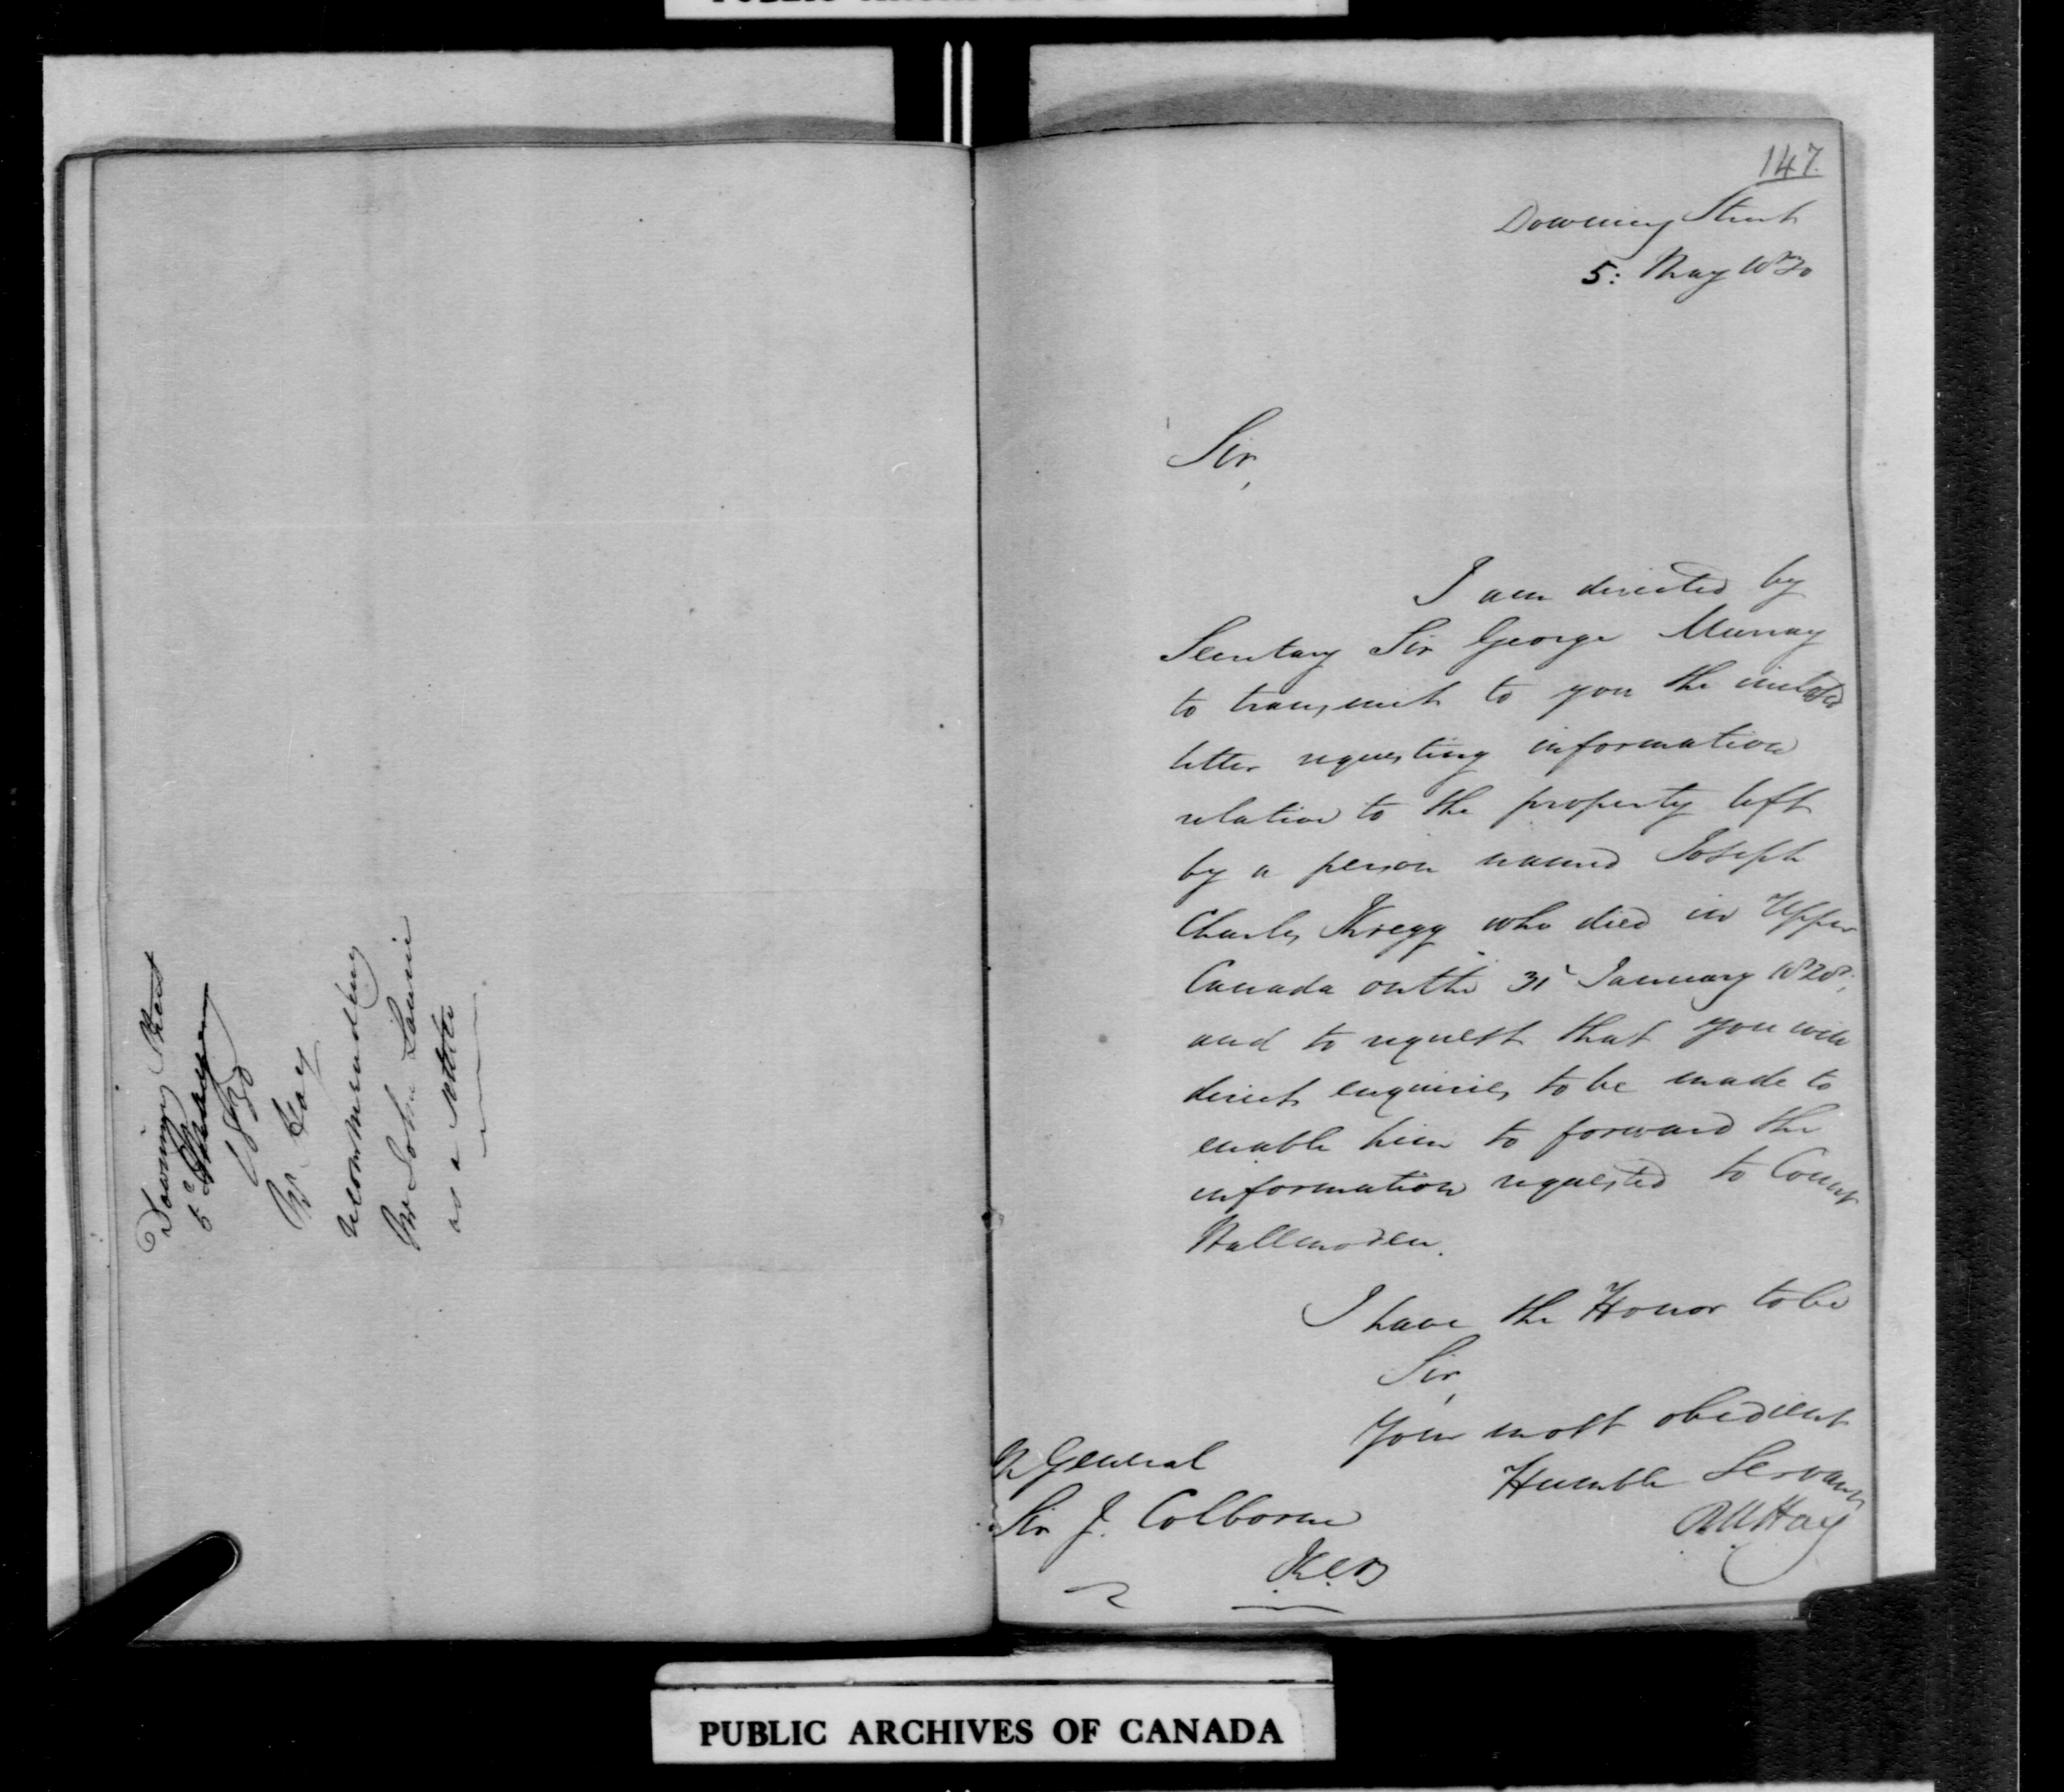 Downing Street
1830
Mr Hay
recommending
Mr John Laurie
as a settler
147.
Downing Street
5: May 1830
Sir,
I am directed by
Secretary Sir George Murray
to transmit to you the inclosed
letter requesting information
relative to the property left
by a person named Joseph
Charles Kregg who died in Upper
Canada on the 31st January 1828;
and to request that you will
direct enquiries to be made to
enable him to forward the
information requested to Count
Wallmoden.
I have the Honor to be
Sir,
Your most obedient
Humble Servant
RW Hay
M General
Sir J. Colborne
KCB
PUBLIC ARCHIVES OF CANADA